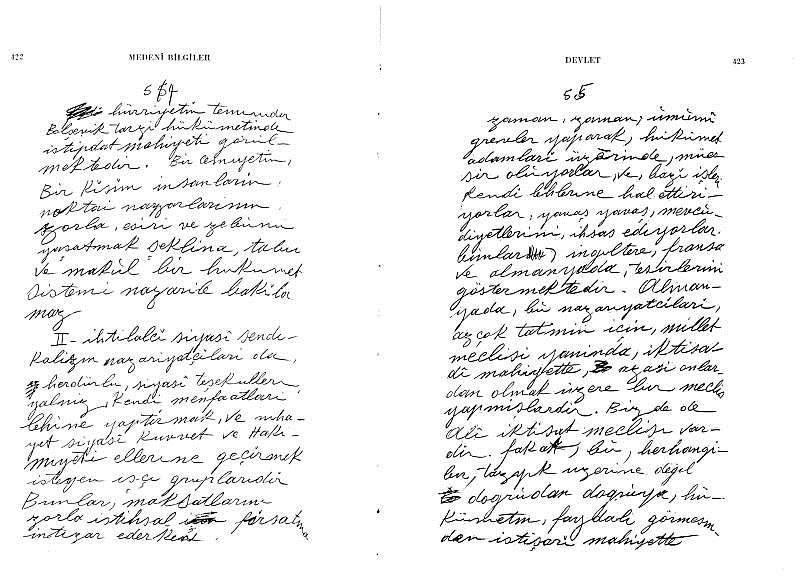 422
MEDENÎ BİLGİLER
hürriyetin temininden
Bolşevik tarzı hükûmetinde
istipdat mahiyeti görül-
mektedir. Bir cemiyetin,
Bir kısım insanların
noktai nazarlarının
zorla, esiri ve zebunu
yaşatmak şeklina, tabii
ve makûl bir hukumet
Sistemi nazarile bakıla
maz
II- ihtilâlci siyasî sende-
kalizm nazariyatçıları da,
herdürlü, siyasî teşekülleri
yalnız, kendi menfaatları
lehine yaptırmak, ve niha-
yet siyasî kuvvet ve Haki-
miyeti ellerine geçirmek
isteyen işçi gruplarıdır
Bunlar, maksatlarını
zorla istihsal için fırsatına
intizar ederken
DEVLET
423
zaman, zaman, ümumî
grevler yaparak, hukumet
adamları üzerinde, mües
sir oluyorlar, ve, bazı işleri
kendi lehlerine hal ettiri-
yorlar, yavaş yavaş, mevcu-
diyetlerini, ihsas ediyorlar.
bunlar ingiltere, fransa
ve almanyada, tesirlerini
göstermektedir. Alman-
yada, bu nazariyatcıları,
azçok tatmin için, millet
meclisi yanında, iktisa-
dî mahiyette, azası onlar
dan olmak üzere bir meclis
yapmışlardır. Biz de de
Âli iktisat meclisi var-
dır. fakat, bu, herhangi-
bir, tazyık uzerine değil
doğrudan doğruya, hü-
kûmetin, faydalı görmesin-
den istişarî mahiyette